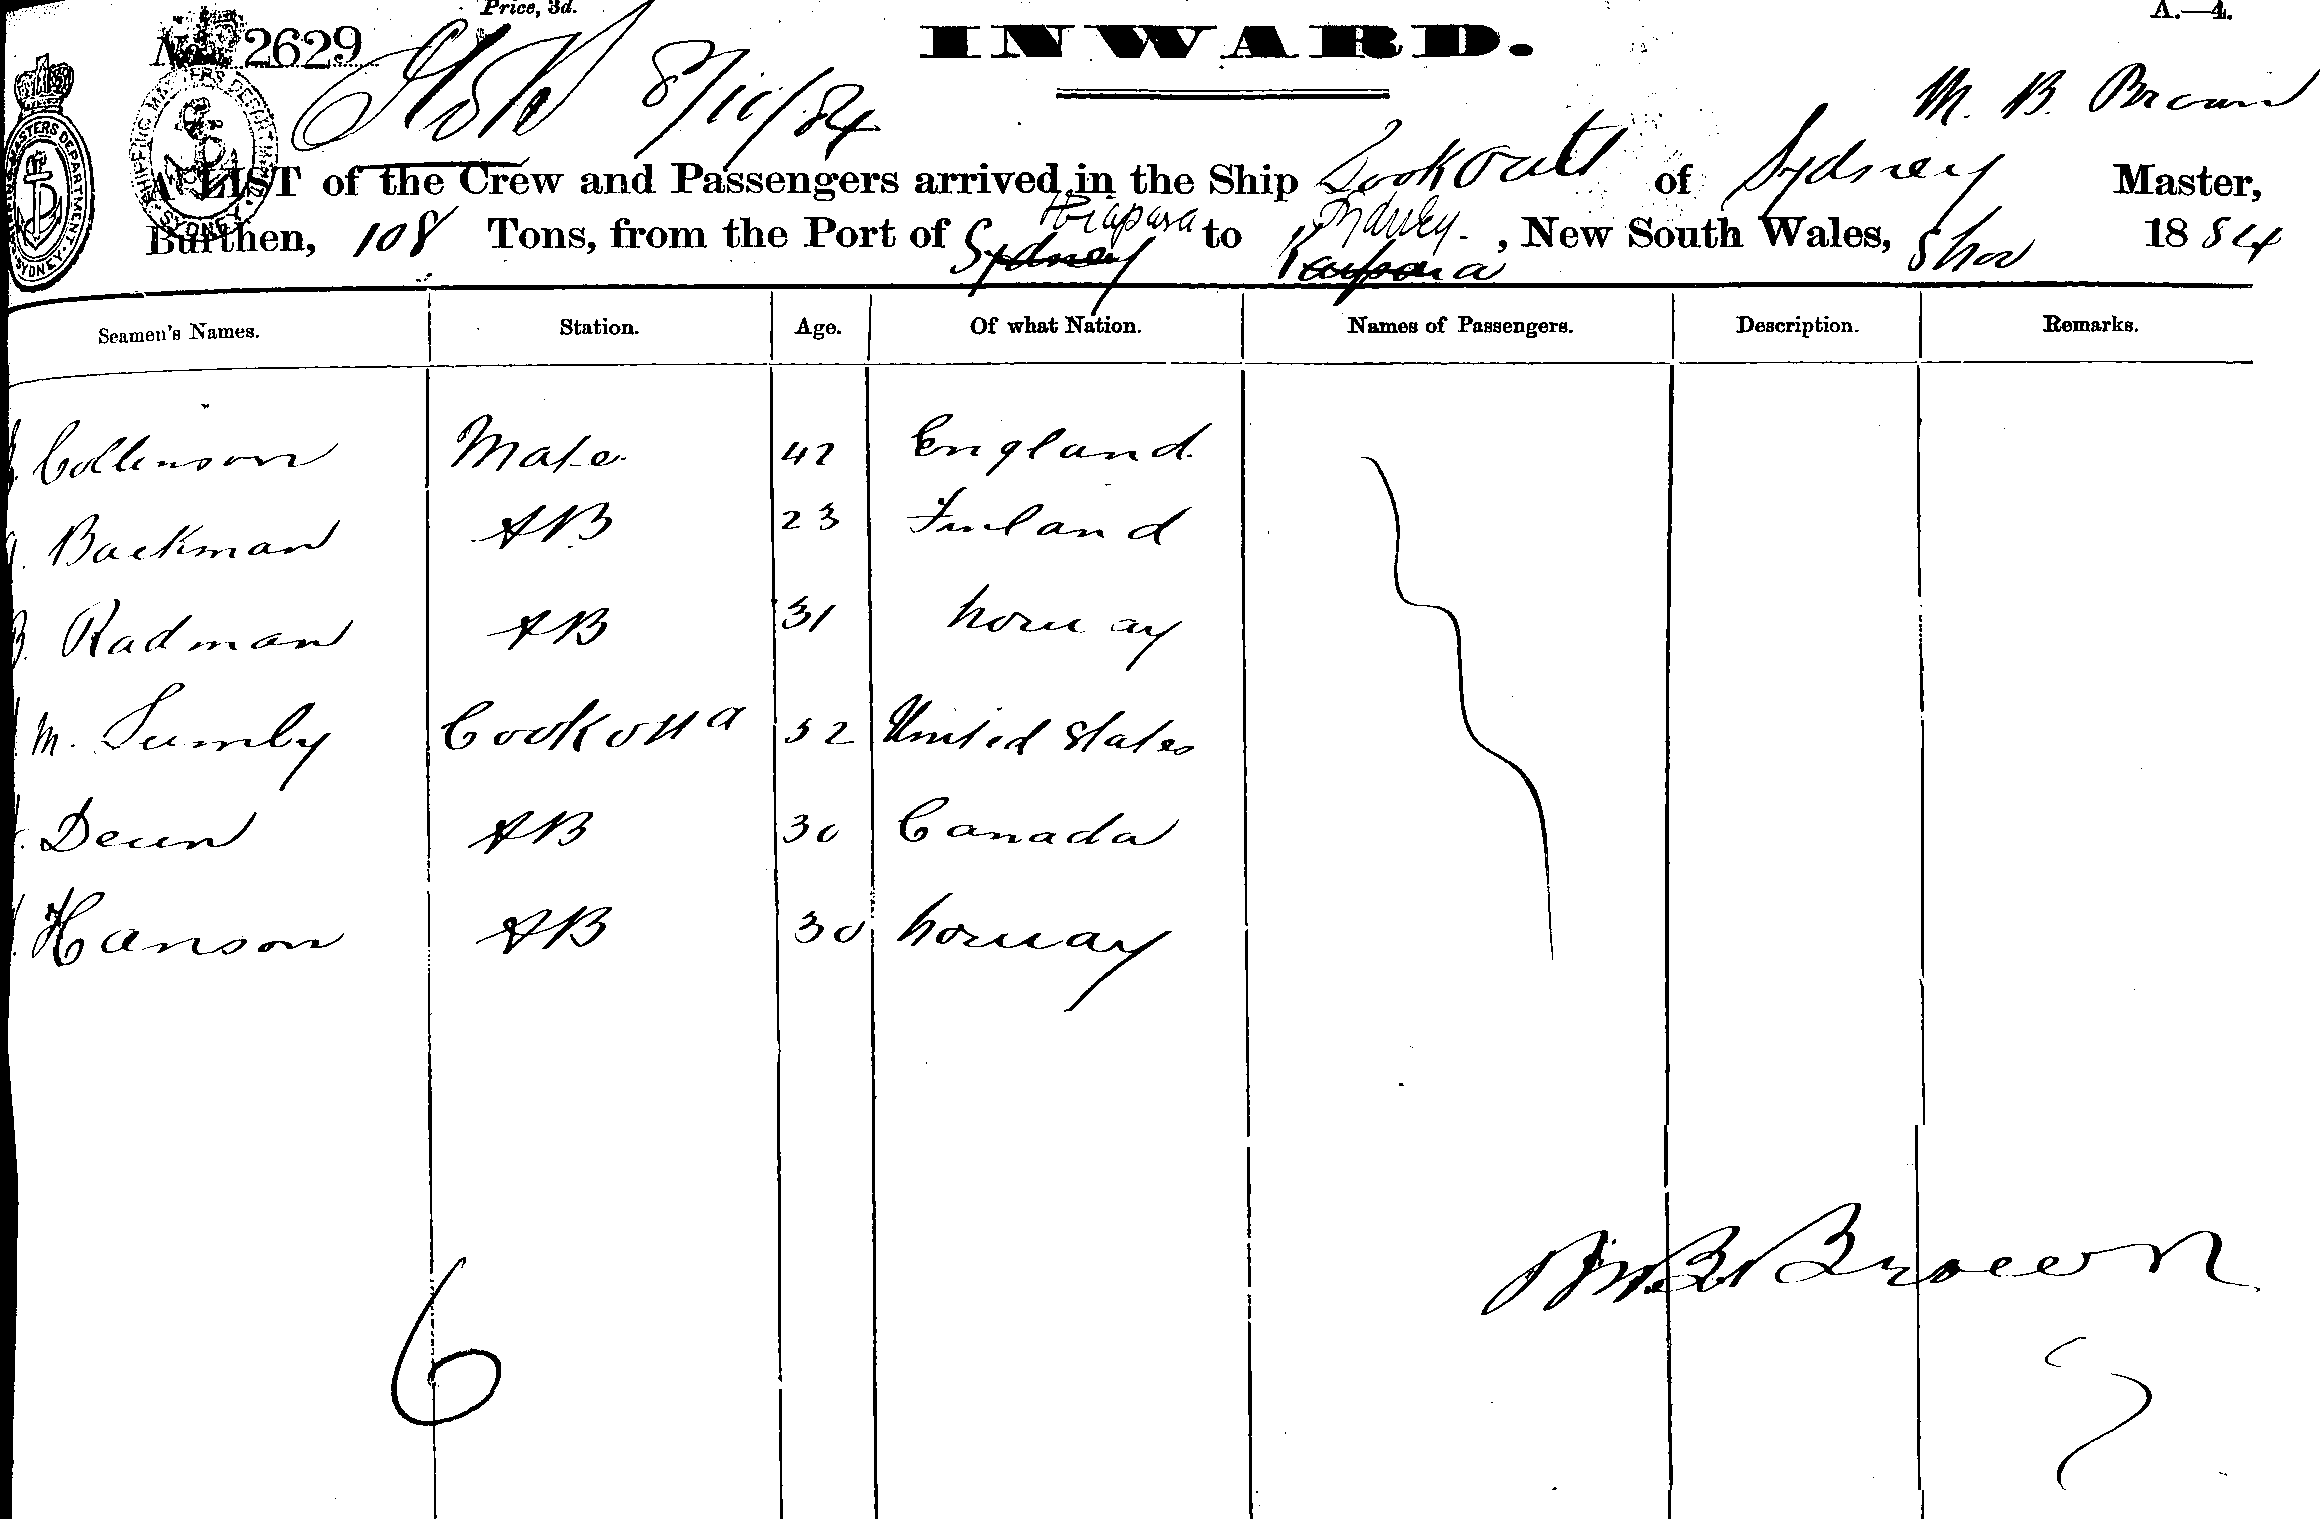 Price, 3d.
A.—4.
No. 2629
INWARD.
8/11/84
M. B. Brown
A LIST of the Crew and Passengers arrived in the Ship Lookout of Sydney Master,
Sydney
Burthen, 108 Tons, from the Port of Sydney to , New South Wales, 8 Nov 1884
Seamen's Names. Station. Age. Of what Nation. Names of Passengers. Description. Remarks.
Collinson Mate 42 England
Backman AB 23 Finland
B. Radman AB 31 Norway
M. Cook 32 United States
AB 30 Canada
Hanson AB 30 Norway
M. B. Brown
6